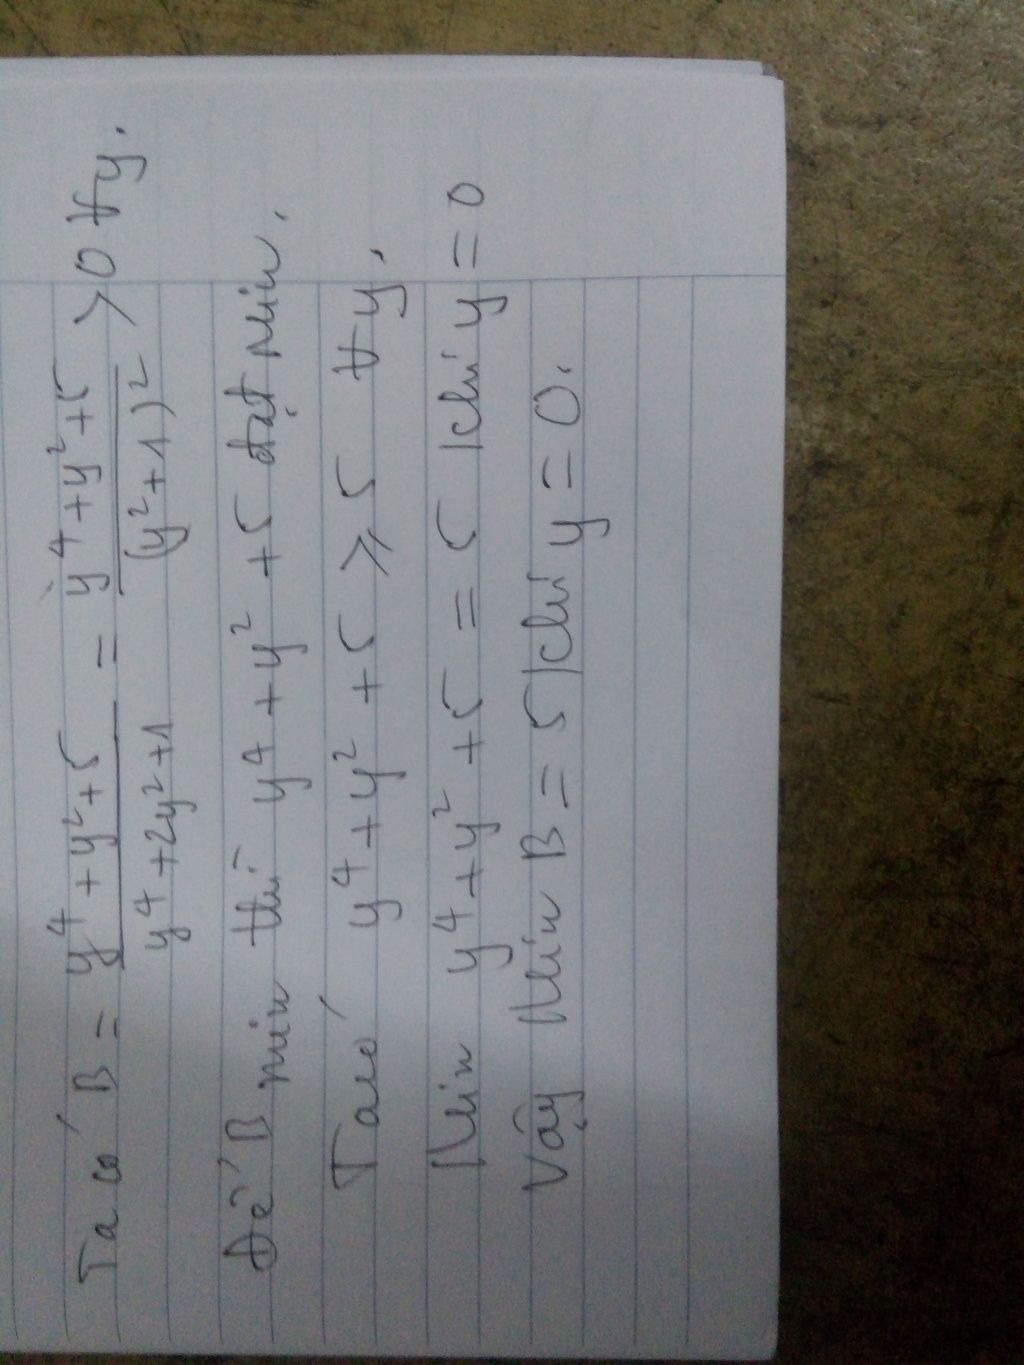 Ta có B = (y⁴ + y² + 5)/(y⁴ + 2y² + 1) = (y⁴ + y² + 5)/(y² + 1)² > 0 ∀y.
Để B min thì y⁴ + y² + 5 đạt Min.
Ta có y⁴ + y² + 5 ⩾ 5 ∀y.
Min y⁴ + y² + 5 = 5 khi y = 0
Vậy Min B = 5 khi y = 0.